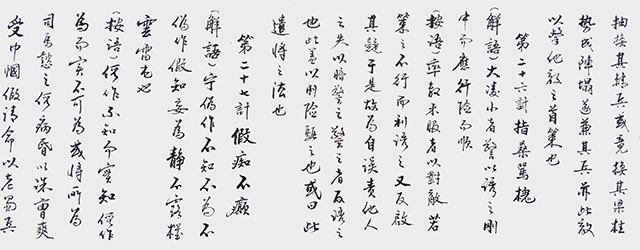 抽换其精兵或竟换其梁柱
势成陣塌遂兼其兵并此敌
以擊他敌之首策也
第二十六計指桑駡槐
(解語)大凌小者警以诱之刚
中而應行险而順
(按语)率数未服者以對敵若
策之不行而利诱之又反啟
其疑于是故為自误责他人
之失以暗警之警之者反诱之
也此盖以刚险驅之也或曰此
遣将之法也
第二十七計假痴不癫
(解語)宁偽作不知不為不
偽作假知妄為静不露機
雲雷屯也
(按语)假作不知而實知假作
為而實不可為或将所為
司馬懿之假病昏以誅曹爽
受巾幗假請命以老蜀兵